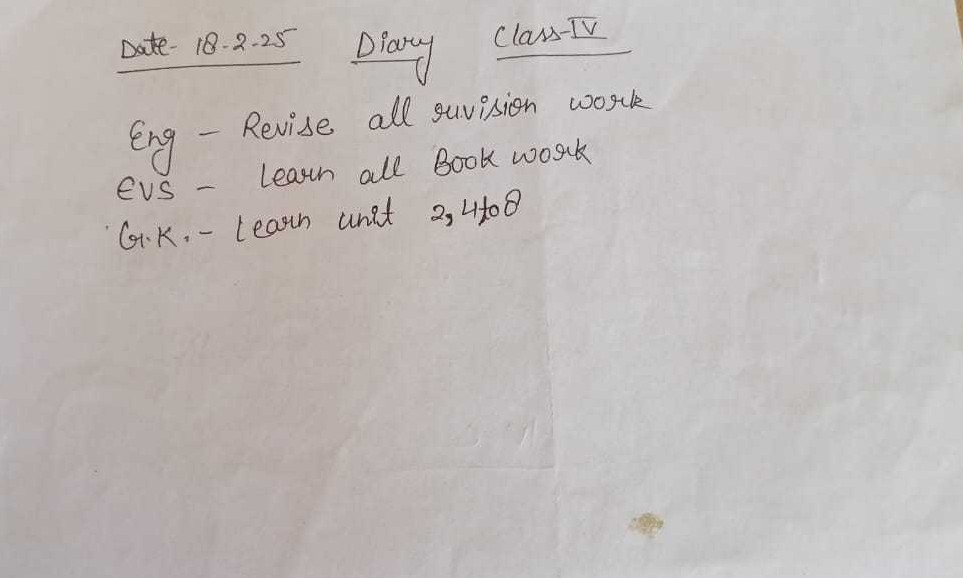 Date- 18-2-25 Diary Class-IV
Eng - Revise all ruvision work
EVS - Learn all Book work
G.K. - Learn unit 2, 4 to 8